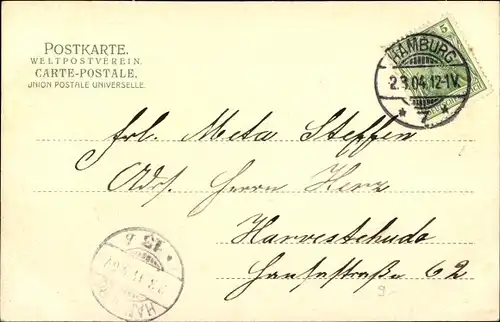 POSTKARTE.
WELTPOSTVEREIN.
CARTE-POSTALE.
UNION POSTALE UNIVERSELLE.
5
HAMBURG
2.3.04.12-1V.
* 7 *
Frl. Meta Steffen
Adr. Herrn Herz
Harvestehude
Hansastraße 62